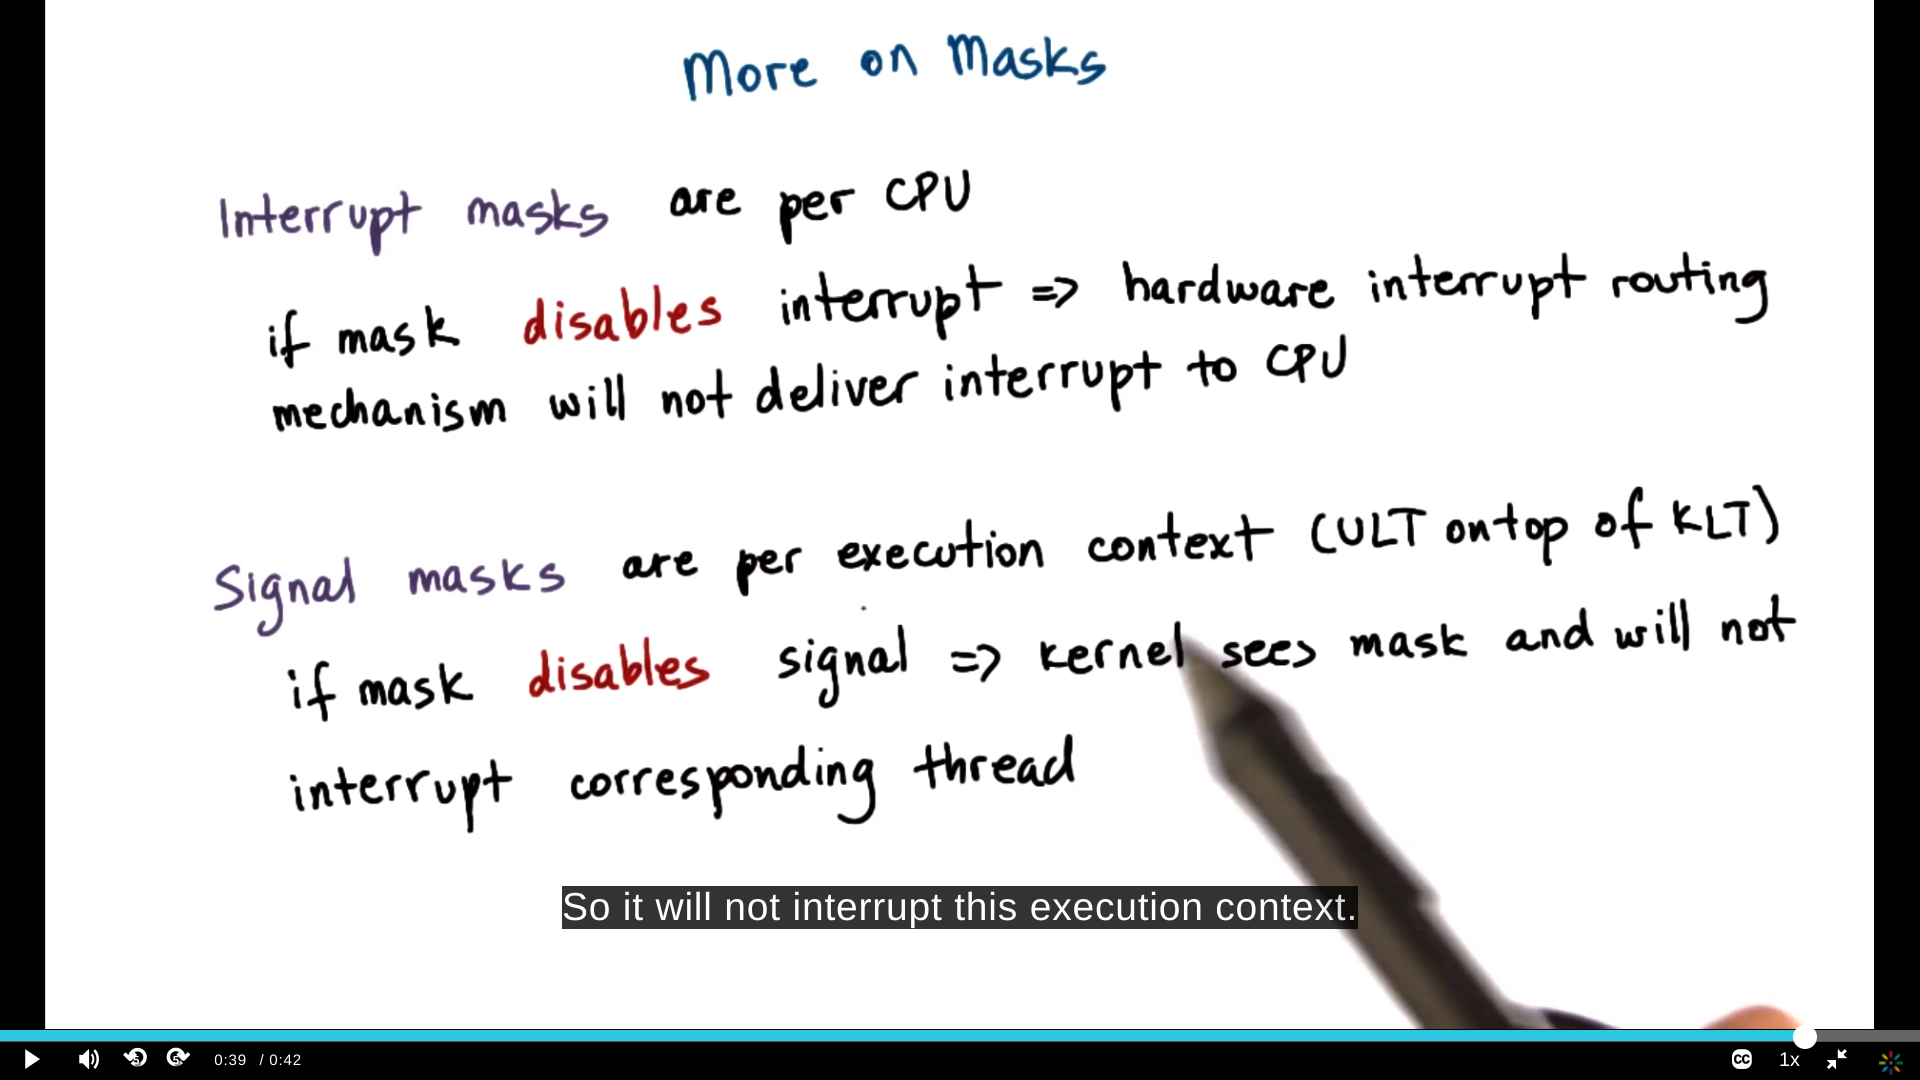 More on Masks
Interrupt masks are per CPU
if mask disables interrupt => hardware interrupt routing
mechanism will not deliver interrupt to CPU
Signal masks are per execution context (ULT on top of KLT)
if mask disables signal => kernel sees mask and will not
interrupt corresponding thread
So it will not interrupt this execution context.
5 5 0:39 / 0:42 CC 1x